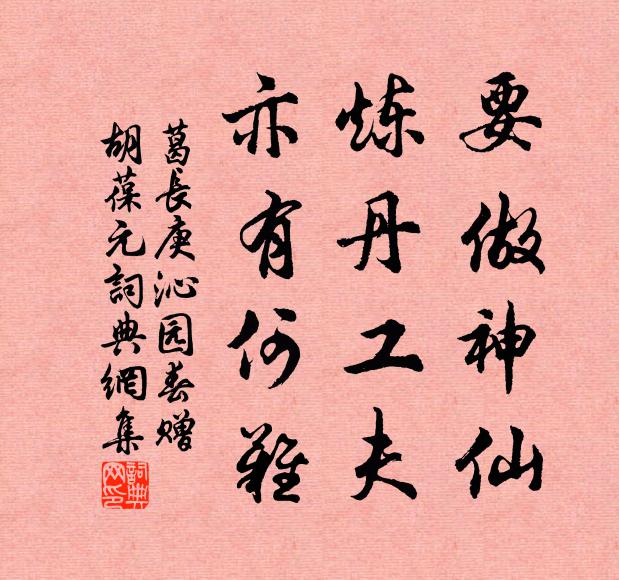 要做神仙
炼丹工夫
亦有何难
葛長庚沁园春赠
胡葆元詞典網集
詞典网印